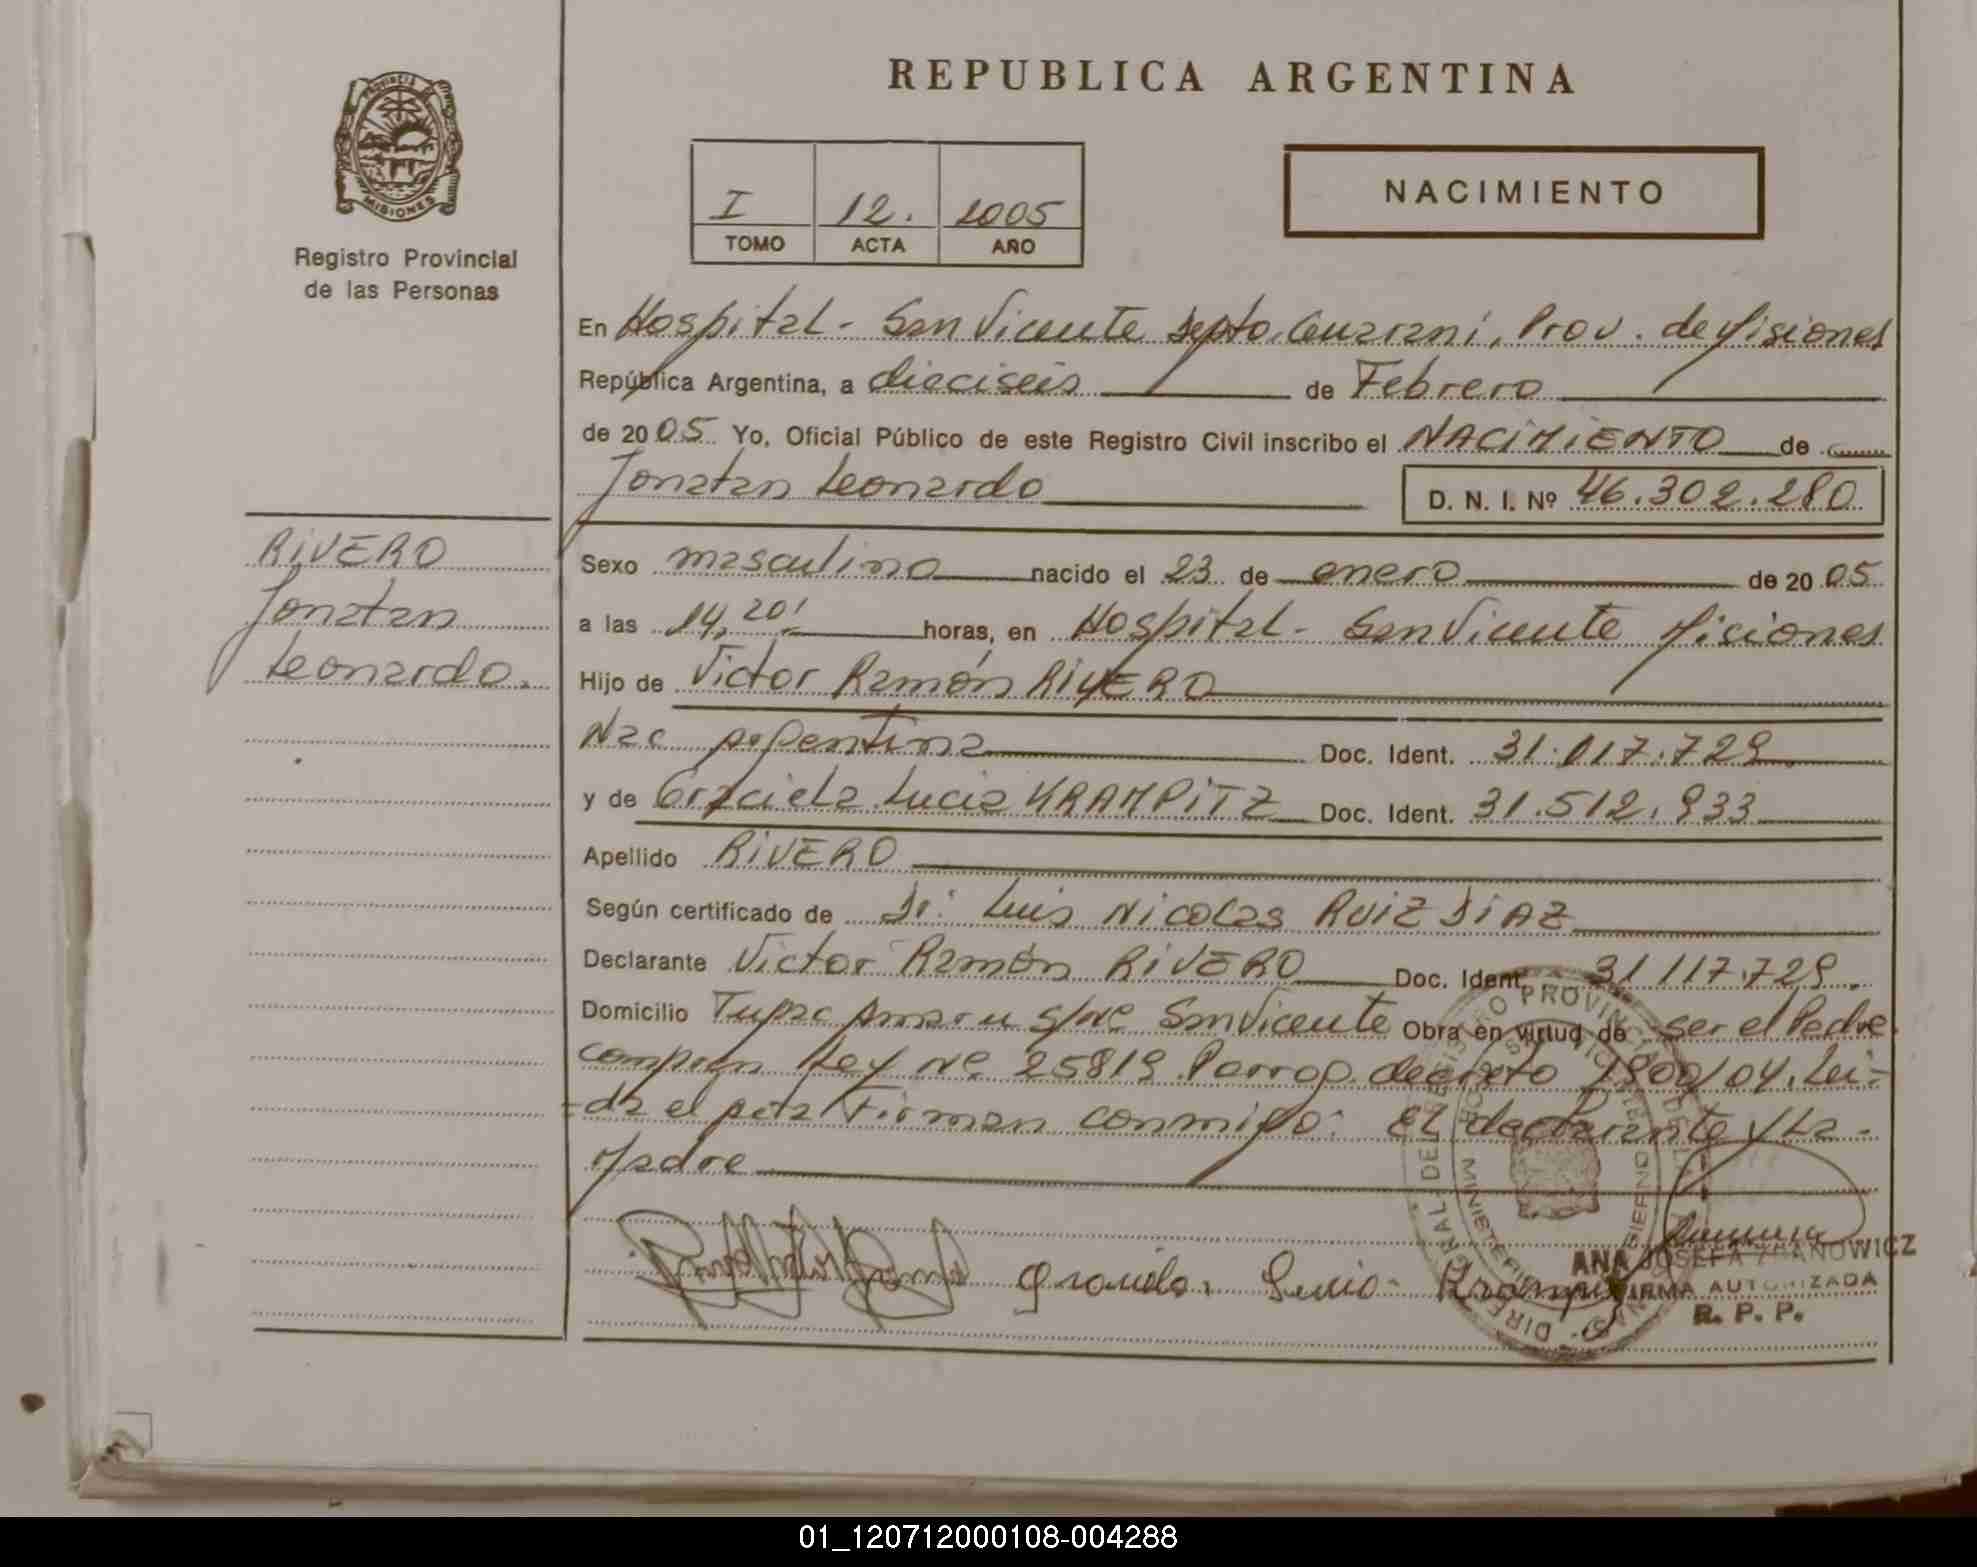 REPUBLICA ARGENTINA
PROVINCIA DE
MISIONES
Registro Provincial
de las Personas
I 12. 2005
TOMO ACTA AÑO
NACIMIENTO
En Hospital - San Vicente Dpto. Guarani, Prov. de Misiones
República Argentina, a dieciseis de Febrero
de 2005 Yo, Oficial Público de este Registro Civil inscribo el NACIMIENTO de
Jonatan Leonardo
D. N. I. Nº 46.302.280
RIVERO
Jonatan
Leonardo.
Sexo masculino nacido el 23 de enero de 2005
a las 14,20' horas, en Hospital - San Vicente Misiones
Hijo de Victor Ramón RIVERO
Nac Argentina Doc. Ident. 31.017.729
y de Graciela Lucia KRAMPITZ Doc. Ident. 31.512.933
Apellido RIVERO
Según certificado de Dr. Luis Nicolas RUIZ DIAZ
Declarante Victor Ramón RIVERO Doc. Ident. 31 117.729.
Domicilio Tupac Amaru S/Nº San Vicente Obra en virtud de ser el Padre
Ley Nº 25819 Porrog. decreto 1900/04. Lei-
-da el acta Firman conmigo: El declarante y La-
Madre
Graciela Lucia
ANA JOSEFA
FIRMA AUTORIZADA
R. P. P.
01_120712000108-004288